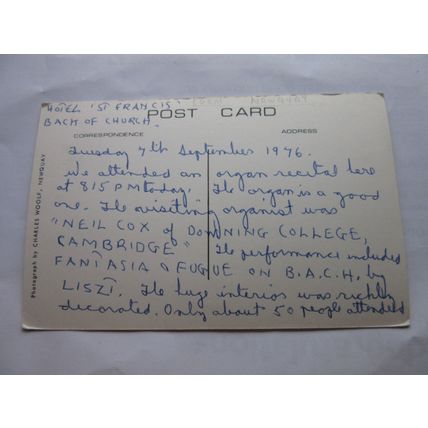 HOTEL 'ST FRANCIS'
NEWQUAY
BACK OF CHURCH.
POST CARD
CORRESPONDENCE
ADDRESS
Tuesday 7th September 1976.
We attended an organ recital here
at 815 PM today. The organ is a good
one. The visiting organist was
"NEIL COX of DOWNING COLLEGE,
CAMBRIDGE" The performance included
FANTASIA & FUGUE ON B.A.C.H. by
LISZT. The huge interior was richly
decorated. Only about 50 people attended
Photograph by CHARLES WOOLF, NEWQUAY